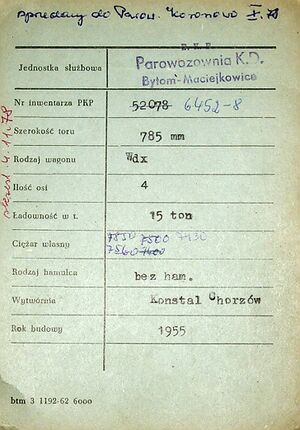 sprzedany do Parow. Koronowo X. 78
P.K.P.
Jednostka służbowa
Parowozownia K.D.
Bytom-Maciejkowice
Nr inwentarza PKP
52078 6452-8
Szerokość toru
785 mm
Rodzaj wagonu
Wdx
Ilość osi
4
Ładowność w t.
15 ton
Ciężar własny
7850 7500 7430
7560 7400
Rodzaj hamulca
bez ham.
Wytwórnia
Konstal Chorzów
Rok budowy
1955
btm 3 1192-62 6000
4.11.78